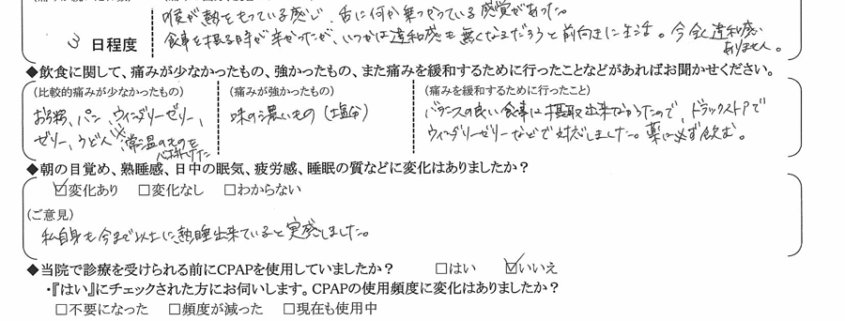 喉が熱をもっている感じ、舌に何か乗っかっている感覚があった。
3 日程度
食事を摂る時が辛かったが、いつかは違和感も無くなるだろうと前向きに生活。今全く違和感
ありません。
◆飲食に関して、痛みが少なかったもの、強かったもの、また痛みを緩和するために行ったことなどがあればお聞かせください。
(比較的痛みが少なかったもの)
お粥、パン、ウィンダリーゼリー、
ゼリー、うどん 常温のものを
(痛みが強かったもの)
味の濃いもの(塩分)
(痛みを緩和するために行ったこと)
バランスの良い食事は摂取出来なかったので、ドラックストアで
ウィンダリーゼリーなどで対応しました。薬は必ず飲む。
◆朝の目覚め、熟睡感、日中の眠気、疲労感、睡眠の質などに変化はありましたか?
☑変化あり □変化なし □わからない
(ご意見)
私自身も今まで以上に熱睡出来ていると実感しました。
◆当院で診療を受けられる前にCPAPを使用していましたか? □はい ☑いいえ
・『はい』にチェックされた方にお伺いします。CPAPの使用頻度に変化はありましたか?
□不要になった □頻度が減った □現在も使用中